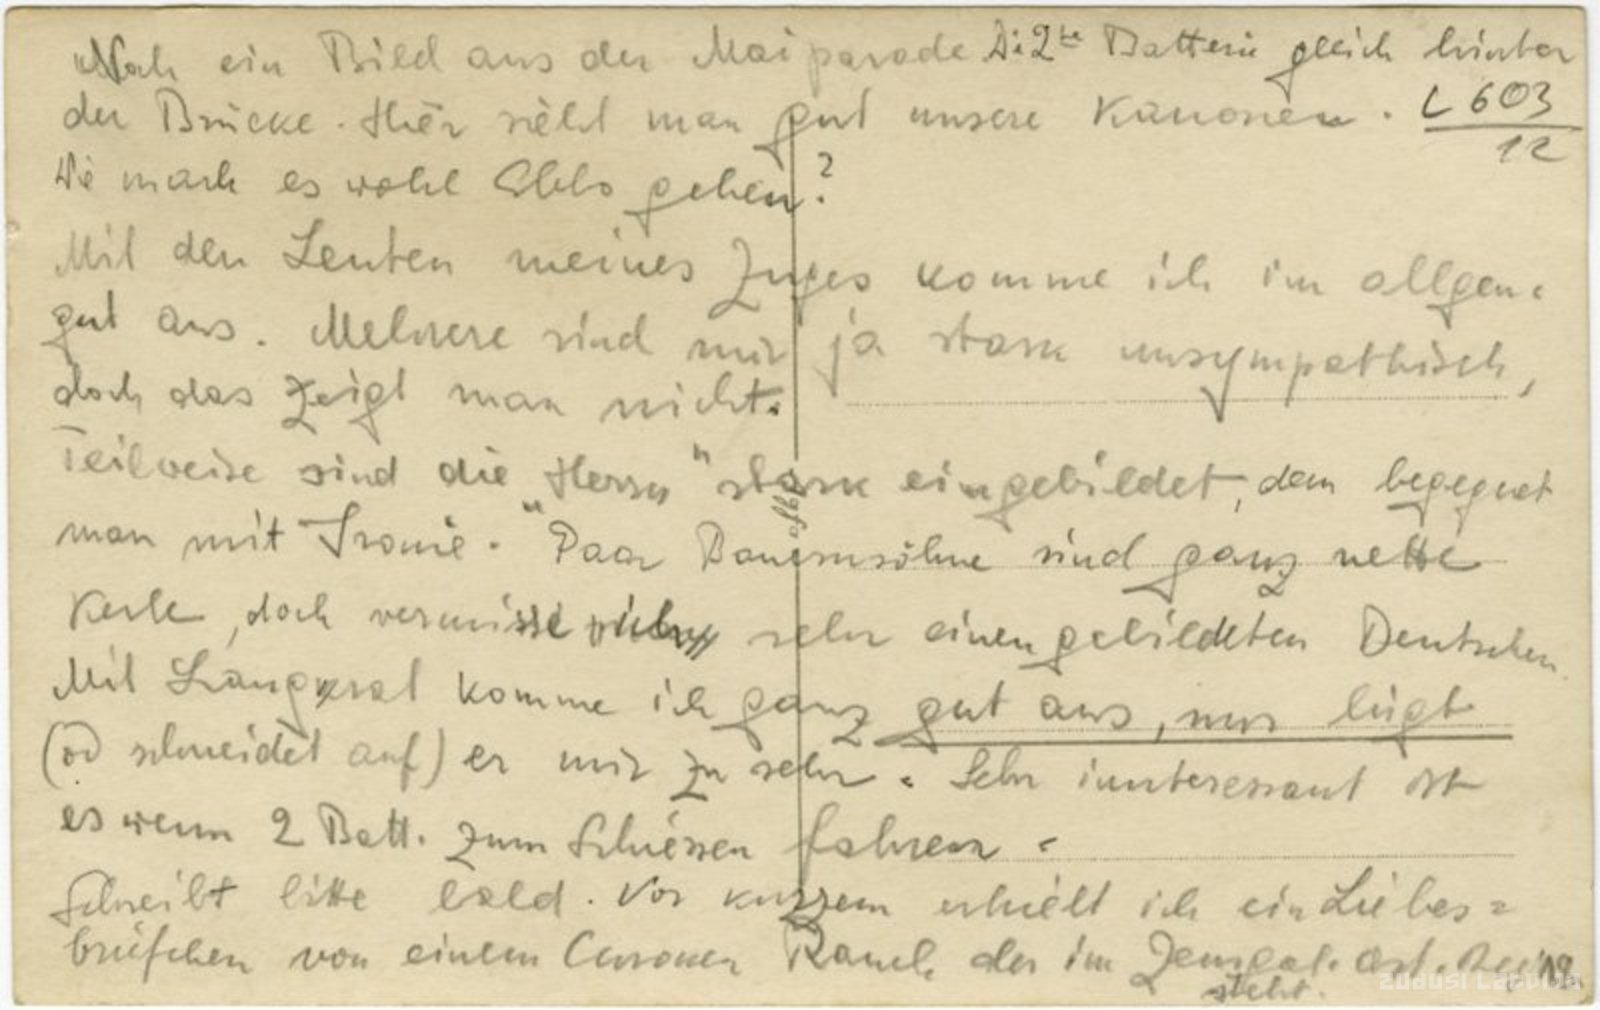 Noch ein Bild aus der Maiparade. Die 2te Batterie gleich hinter
der Brücke. Hier sieht man gut unsere Kanonen. L 603
12
Wie mach es wohl Ebbo gehen?
Mit den Leuten meines Zuges komme ich im allgem.
gut aus. Mehrere sind mir ja stark unsympathisch,
doch das zeigt man nicht.
Teilweise sind die „Herrn" stark eingebildet, dem begegnet
man mit Ironie. Paar Bauernsöhne sind ganz nette
Kerle, doch vermisse sehr einen gebildeten Deutschen.
Mit komme ich ganz gut aus, nur lügt
(od schneidet auf) er mir zu sehr. Sehr innteressant ist
es wenn 2 Batt. zum Schiessen fahren.
Schreibt bitte bald. Vor kurzem erhielt ich ein Liebes=
briefchen von einem Curonen Rauch der im Zemgal. Art. Reg
steht.
zudusi Latvija